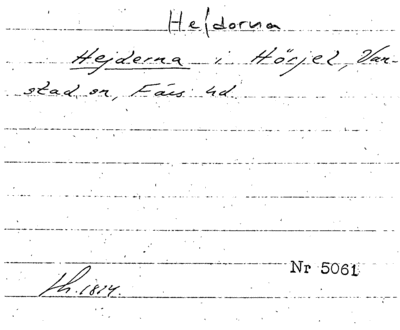 Hejdorna
Hejderna i Hörjel, Van-
stad sn, Färs hd.
Nr 5061
th. 1814.